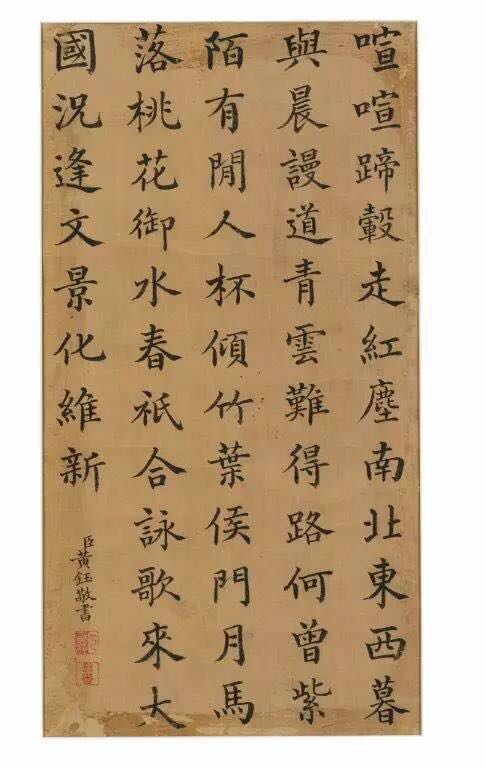 喧喧蹄轂走紅塵南北東西暮
與晨謾道青雲難得路何曾紫
陌有閒人杯傾竹葉侯門月馬
落桃花御水春祇合詠歌來大
國況逢文景化維新
臣黃鈺敬書